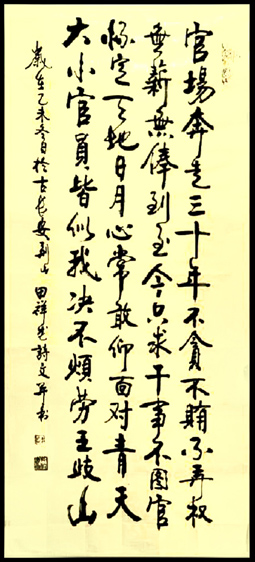 官場奔走三十年不貪不賄不弄权
無薪無俸到至今只求干事不图官
怀定天地日月心常敢仰面对青天
大小官員皆似我决不煩劳王歧山
歲在乙未冬日於古长安荆山田祥先詩文并书